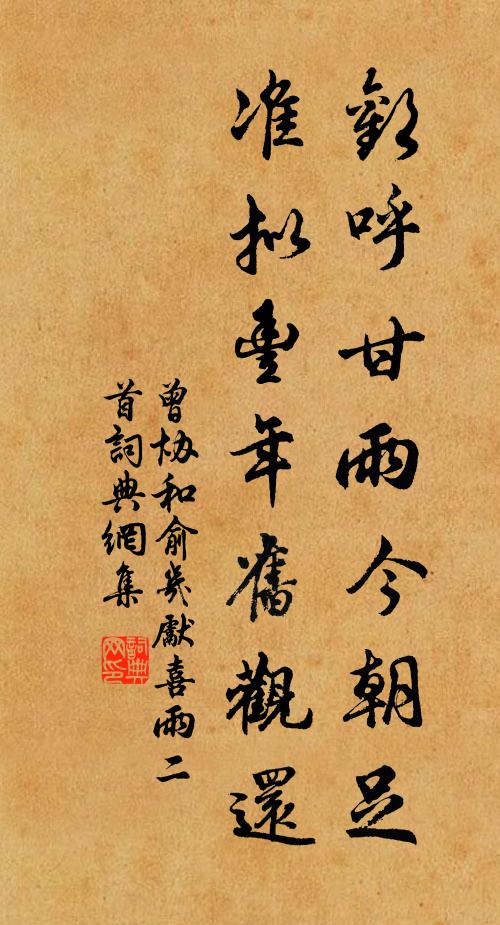 歡呼甘雨今朝足
准拟豐年舊觀還
曾協和俞幾獻喜雨二
首詞典網集
詞典網印